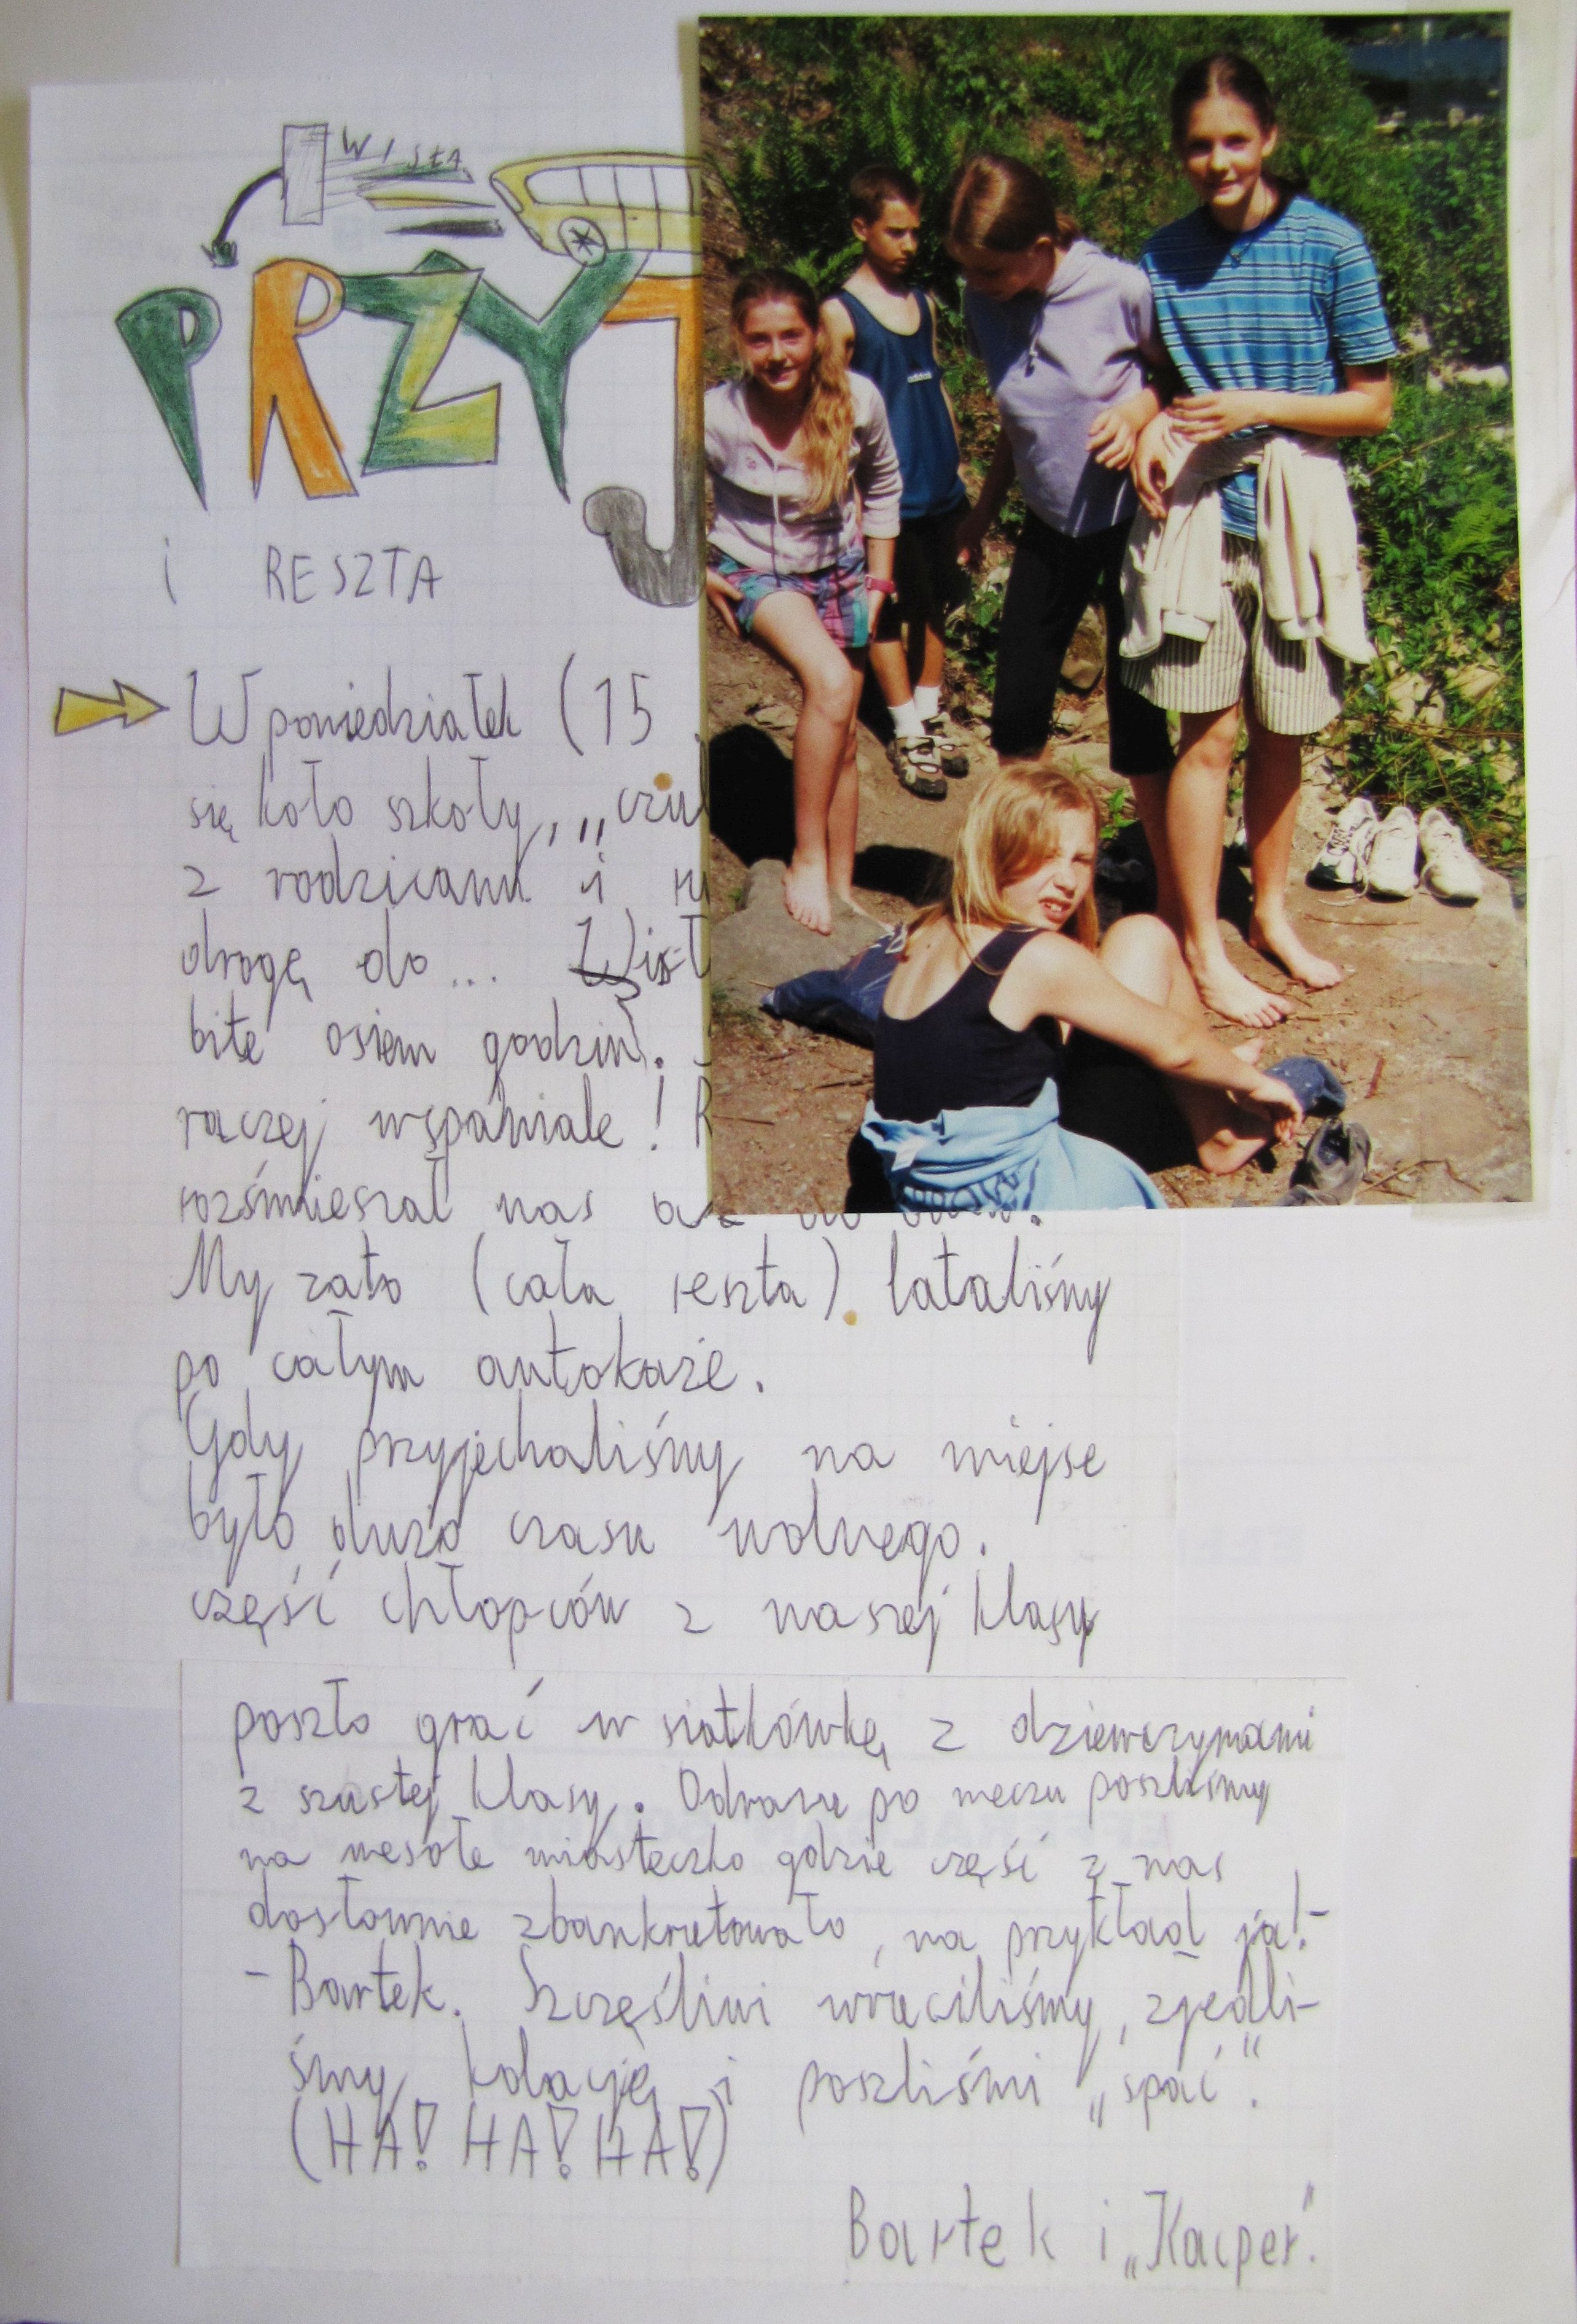 WISŁA
PRZYJ
i RESZTA
W poniedziałek (15
się koło szkoły, „czu
z rodzicami i
drogę do... Wisł
bite osiem godzin.
raczej wspaniale!
rozśmieszał nas aż do
My zato (cała reszta) lataliśmy
po całym autokaże.
Gdy przyjechaliśmy na miejse
było dużo czasu wolnego.
część chłopców z naszej klasy
poszło grać w siatkówkę z dziewczynami
z szustej klasy. Odrazu po meczu poszliśmy
na wesołe miasteczko gdzie część z nas
dosłownie zbankrutowało, na przykład ja!-
- Bartek. Szczęśliwi wruciliśmy, zjedli-
śmy kolację i poszliśmi „spać".
(HA! HA! HA!)
Bartek i „Kacper".
adidas